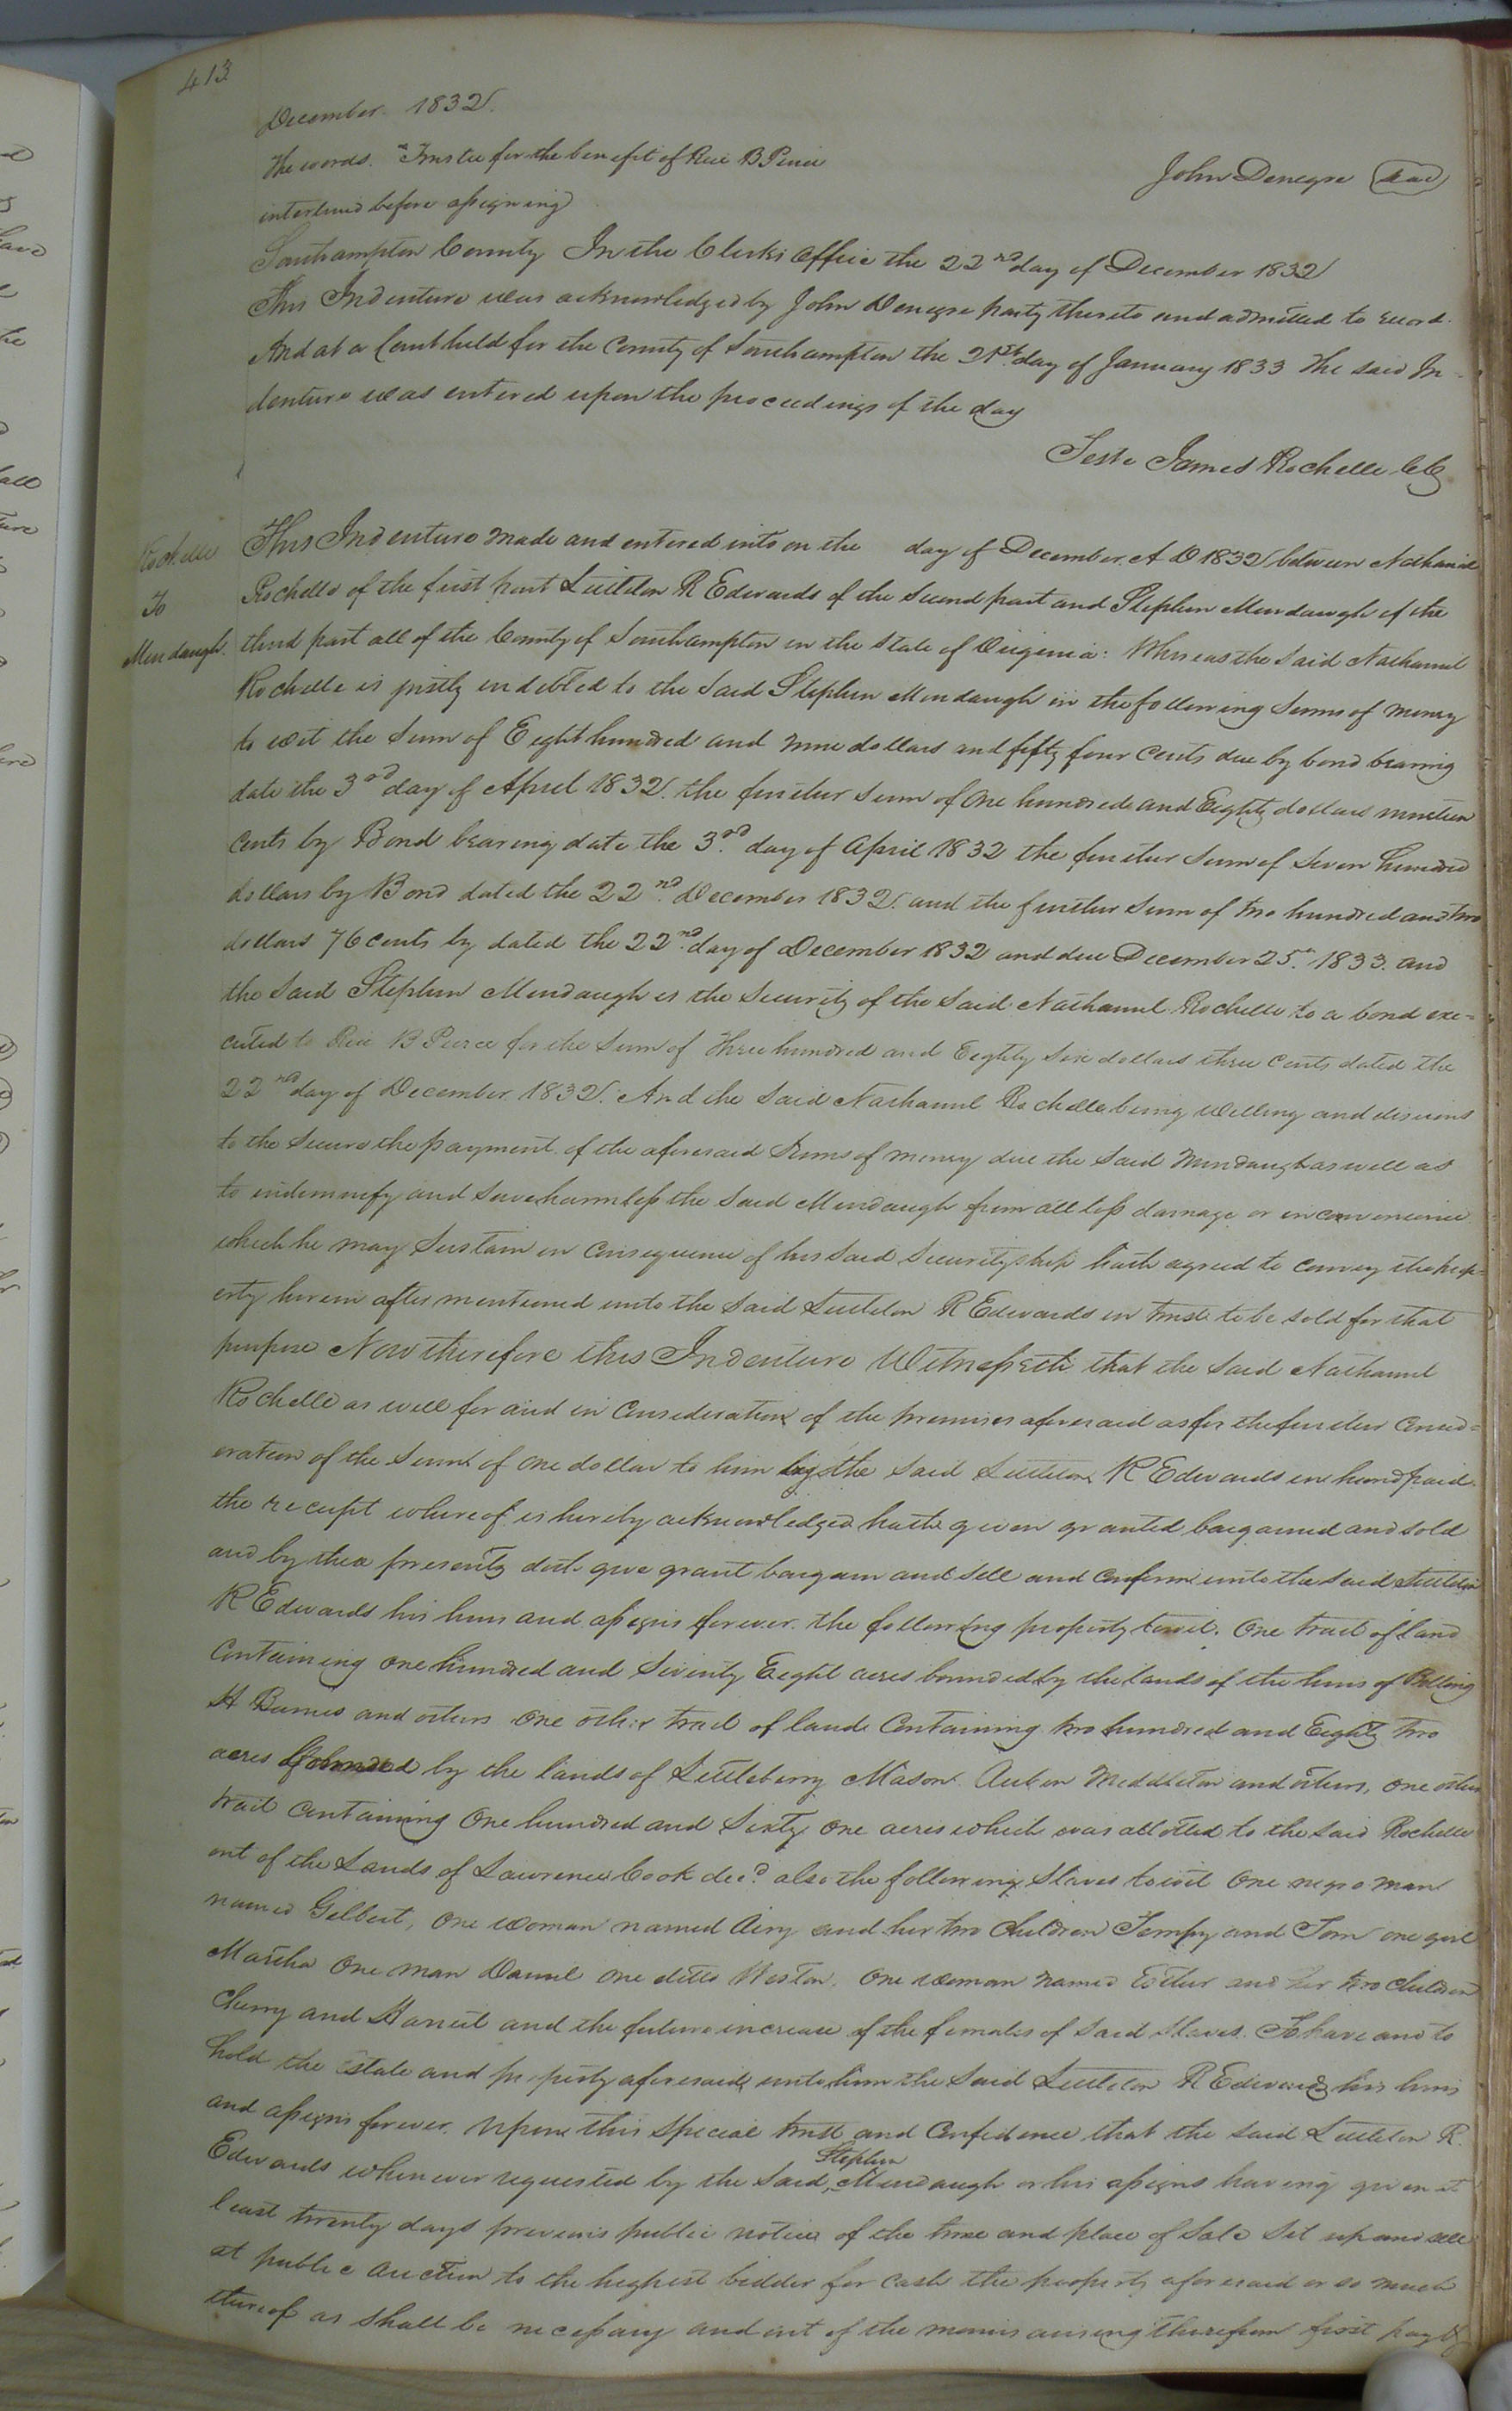 413
December 1832.
The words. "Trustee for the benefit of Rice B Pierce
interlined before assigning
John Denegre Seal
Southampton County In the Clerks Office the 22nd day of December 1832
This Indenture was acknowledged by John Denegre party thereto and admitted to record.
And at a Court held for the County of Southampton the 21st day of January 1833 The said In
denture was entered upon the proceedings of the day
Teste James Rochelle CC
Rochelle
To
Mendaugh.
This Indenture made and entered into on the day of December A D 1832 between Nathaniel
Rochelle of the first part Littleton R Edwards of the second part and Stephen Mendaugh of the
third part all of the County of Southampton in the State of Virginia: Whereas the said Nathaniel
Rochelle is justly indebted to the said Stephen Mendaugh in the following sums of money
to wit the sum of Eight hundred and nine dollars and fifty four cents due by bond bearing
date the 3rd day of April 1832. the further sum of one hundred and Eighty dollars nineteen
cents by Bond bearing date the 3rd day of April 1832 the further sum of seven hundred
dollars by Bond dated the 22nd December 1832. and the further sum of two hundred and two
dollars 76 cents by dated the 22nd day of December 1832 and due December 25th 1833. and
the said Stephen Mendaugh is the security of the said Nathaniel Rochelle to a bond exe=
cuted to Rice B Pierce for the sum of three hundred and Eighty six dollars three cents dated the
22nd day of December 1832. And the said Nathaniel Rochelle being willing and desirous
to the secure the payment of the aforesaid sums of money due the said Mendaugh as well as
to indemnify and save harmless the said Mendaugh from all loss damage or inconvenience
which he may sustain in consequence of his said securityship hath agreed to convey the prop=
erty herein after mentioned unto the said Littleton R Edwards in trust to be sold for that
purpose Now therefore this Indenture Witnesseth that the said Nathaniel
Rochelle as well for and in consideration of the premises aforesaid as for the further consid=
eration of the sum of one dollar to him by the said Littleton R Edwards in hand paid.
the receipt whereof is hereby acknowledged hath given granted bargained and sold
and by these presents doth give grant bargain and sell and confirm unto the said Littleton
R Edwards his heirs and assigns forever. the following property towit. One tract of land
containing one hundred and seventy Eight acres bounded by the lands of the heirs of Bolling
H Barnes and others one other tract of land containing two hundred and Eighty two
acres bounded by the lands of Littleberry Mason Middleton and others, one other
tract containing One hundred and Sixty One acres which was allotted to the said Rochelle
out of the Lands of Lawrence Cook decd. also the following slaves towit One negro man
named Gilbert, one woman named Airy and her two children Tempy and Tom one girl
Martha One man Daniel one ditto Weston. One woman named Esther and her two children
Cherry and Harriet and the future increase of the females of said slaves. To have and to
hold the Estate and property aforesaid unto him the said Littleton R Edwards his heirs
and assigns forever. Upon this special trust and confidence that the said Littleton R.
Edwards whenever requested by the said Stephen Mendaugh or his assigns having given at
least twenty days previous public notice of the time and place of sale set up and sell
at public auction to the highest bidder for cash the property aforesaid or so much
thereof as shall be necessary and out of the monies arising therefrom first pay off